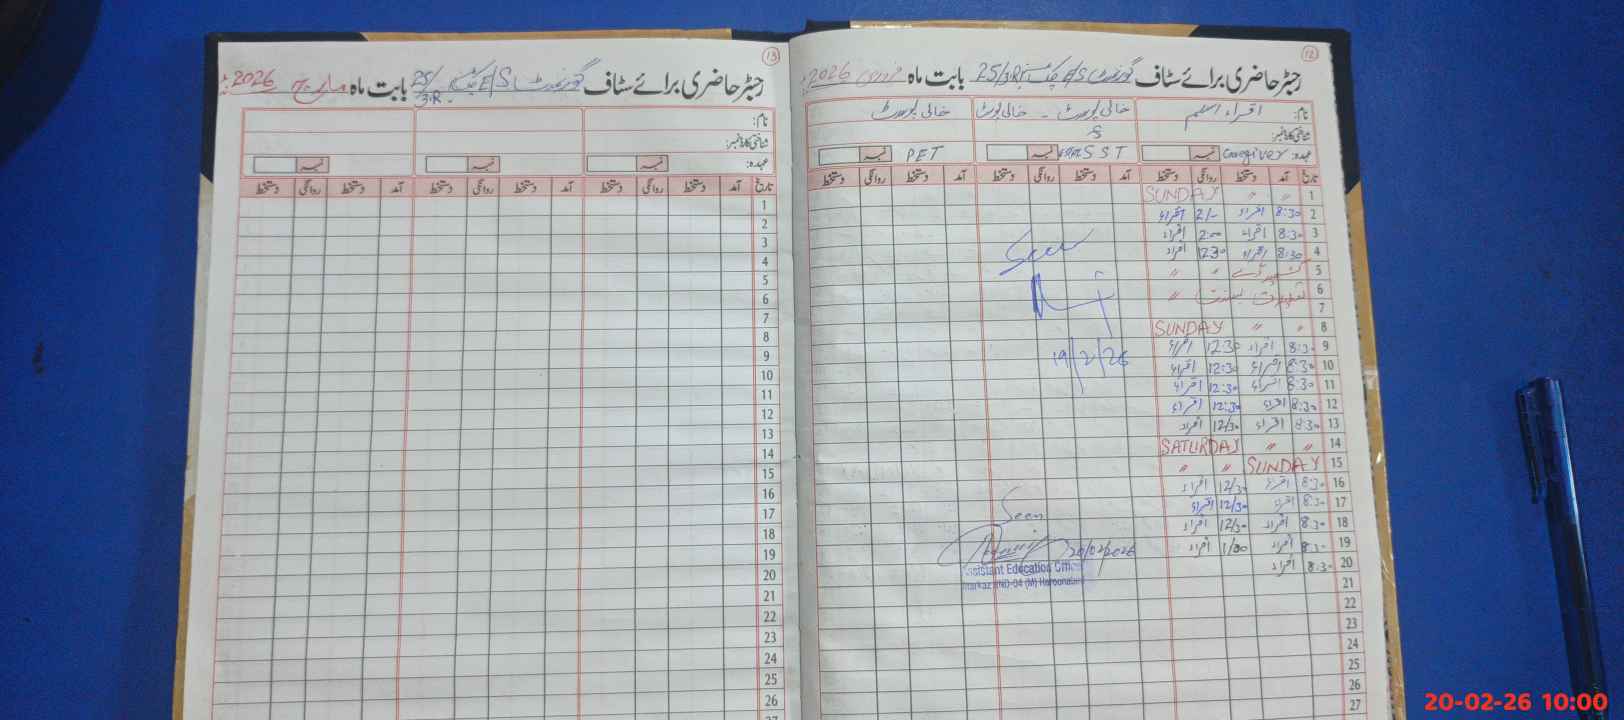 12
رجسٹر حاضری برائے سٹاف گورنمنٹ E/S چک نمبر 25/3.R بابت ماہ فروری 2026ء
نام: اقراء اسلم خالی پوسٹ - خالی پوسٹ خالی پوسٹ
شناختی کارڈ نمبر:
عہدہ: Caregiver نمبر SST نمبر PET نمبر
تاریخ آمد دستخط روانگی دستخط آمد دستخط روانگی دستخط آمد دستخط روانگی دستخط
1 〃 〃 SUNDAY
2 8:30 اقراء 2/- اقراء
3 8:30 اقراء 2:00 اقراء
4 8:30 اقراء 1230 اقراء
Seen
5 کشمیر ڈے 〃 〃
6 تعطیلات بسنت 〃
7
8 〃 〃 SUNDAY
9 8:30 اقراء 12:30 اقراء
19/2/26
10 8:30 اقراء 12:30 اقراء
11 8:30 اقراء 12:30 اقراء
12 8:30 اقراء 12:30 اقراء
13 8:30 اقراء 12/30 اقراء
14 〃 〃 SATURDAY
15 SUNDAY 〃 〃
16 8:30 اقراء 12/30 اقراء
17 8:30 اقراء 12/30 اقراء
Seen
18 8:30 اقراء 12/30 اقراء
19 8:30 اقراء 1/00 اقراء
20/02/2026
20 8:30 اقراء
Assistant Education Officer
Markaz (M) Haroonabad
21
22
23
24
25
26
27
13
رجسٹر حاضری برائے سٹاف گورنمنٹ E/S چک 25/3.R بابت ماہ مارچ 2026ء
نام:
شناختی کارڈ نمبر:
عہدہ: نمبر نمبر نمبر
تاریخ آمد دستخط روانگی دستخط آمد دستخط روانگی دستخط آمد دستخط روانگی دستخط
1
2
3
4
5
6
7
8
9
10
11
12
13
14
15
16
17
18
19
20
21
22
23
24
25
26
27
20-02-26 10:00